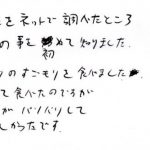 をネットで調べたところ
の事を初めて知りました.
りのすごもりを食べました
て食べたのですが
がバリバリして
しかったです.